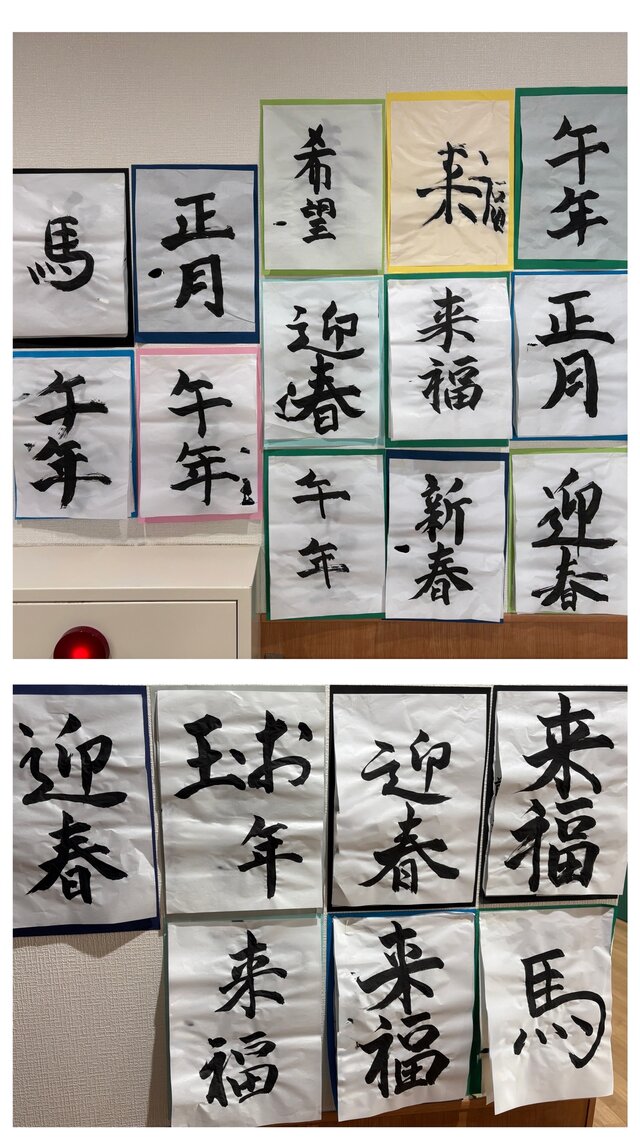 馬
正月
希望
来福
午年
迎春
来福
正月
午年
午年
午年
新春
迎春
迎春
お年
玉
迎春
来福
来福
来福
馬